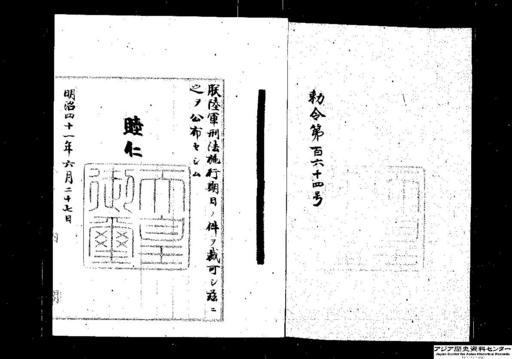 勅令第百六十四号
朕陸軍刑法施行期日ノ件ヲ裁可シ茲ニ
之ヲ公布セシム
睦仁
天皇
御璽
明治四十一年六月二十七日
アジア歴史資料センター
Japan Center for Asian Historical Records